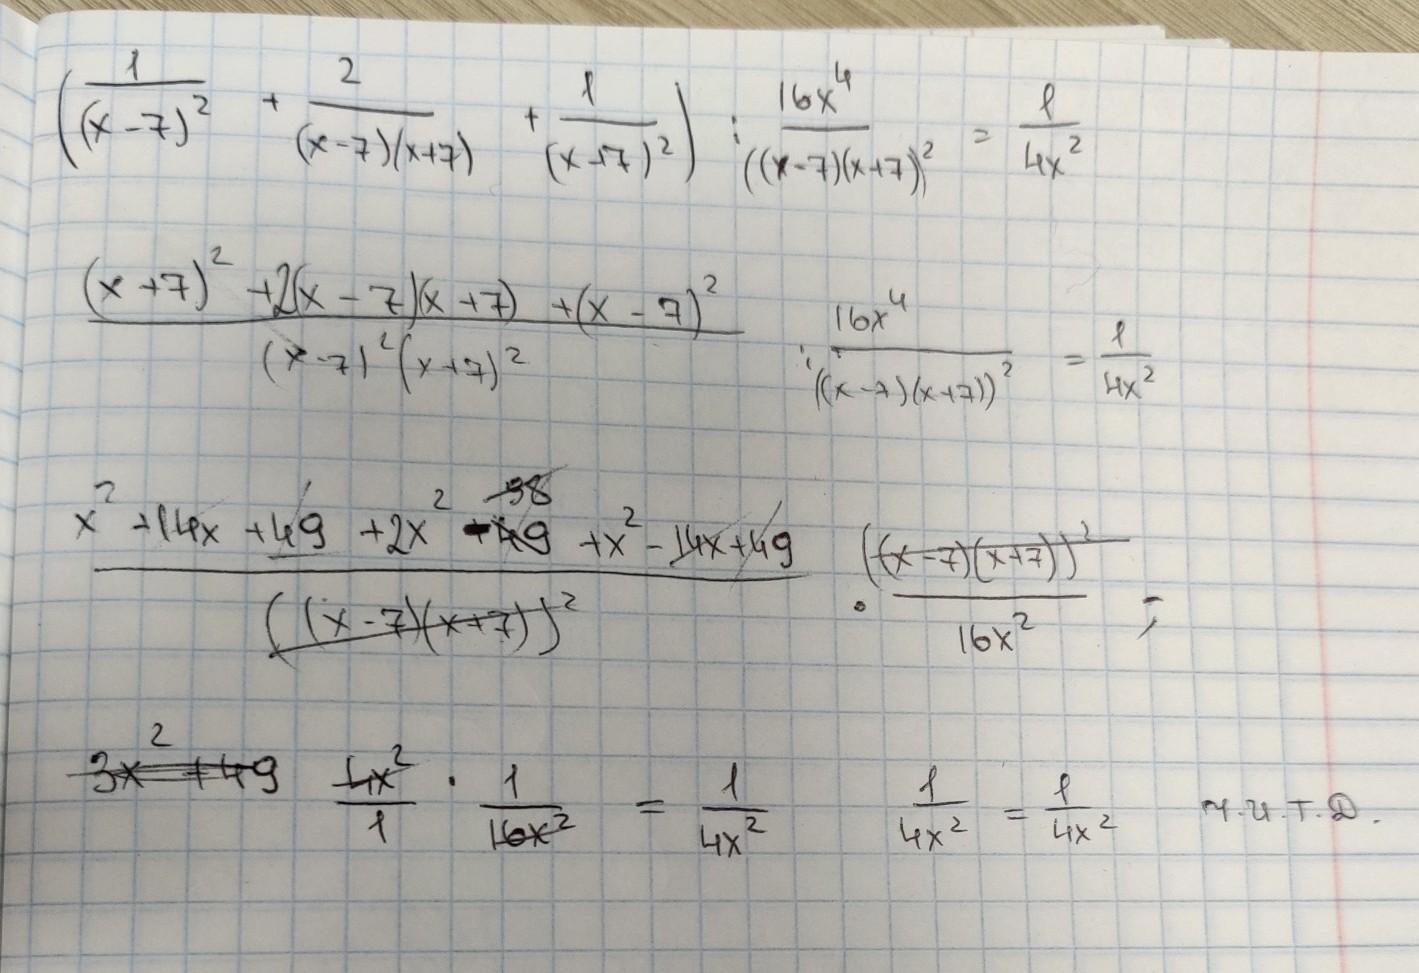 (1/(x-7)² + 2/((x-7)(x+7)) + 1/(x+7)²) : 16x⁴/((x-7)(x+7))² = 1/4x²
((x+7)² + 2(x-7)(x+7) + (x-7)²)/((x-7)²(x+7)²) : 16x⁴/((x-7)(x+7))² = 1/4x²
(x² + 14x + 49 + 2x² - 98 + x² - 14x + 49)/((x-7)(x+7))² · ((x-7)(x+7))²/16x² =
3x² + 49 4x²/1 · 1/16x² = 1/4x² 1/4x² = 1/4x² ч.и.т.д.